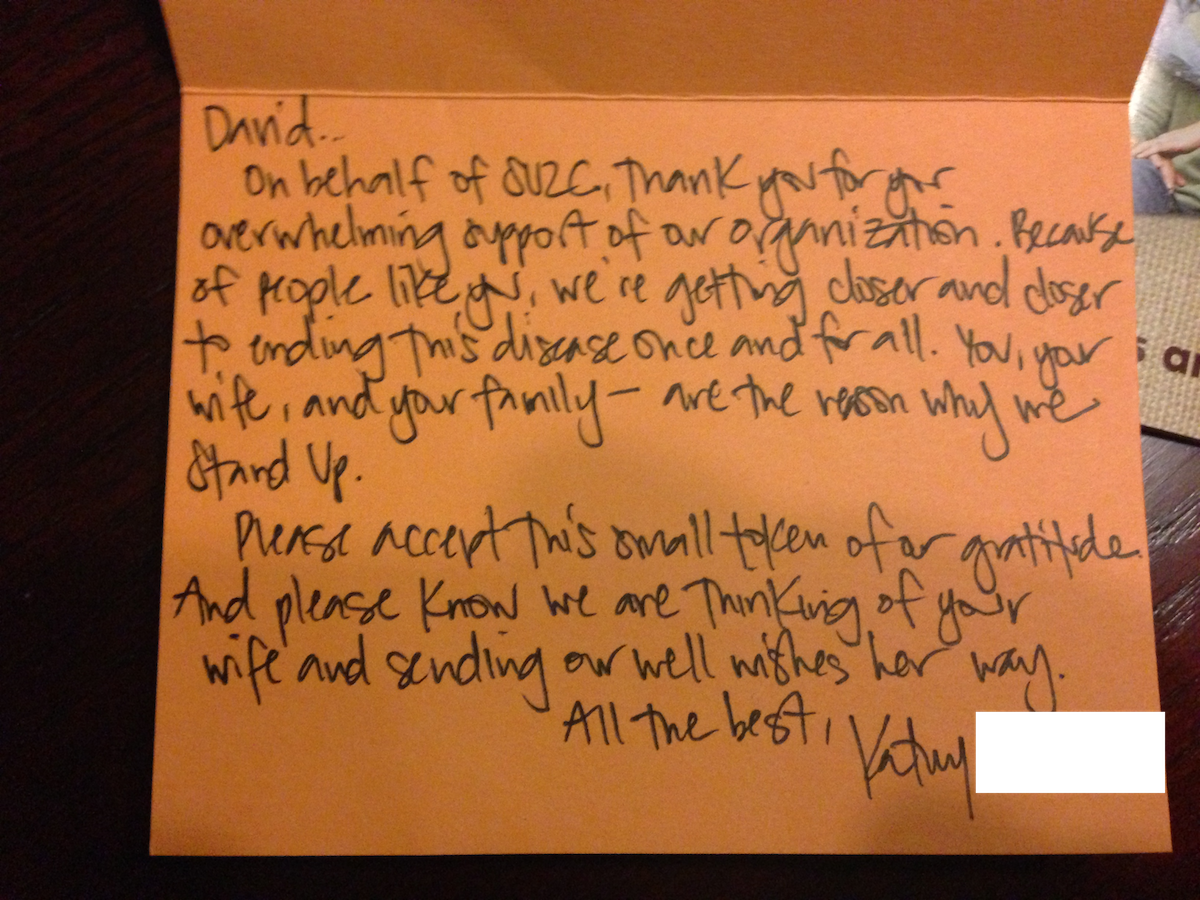 David...
On behalf of SU2C, thank you for your
overwhelming support of our organization. Because
of people like you, we're getting closer and closer
to ending this disease once and for all. You, your
wife, and your family — are the reason why we
Stand Up.
Please accept this small token of our gratitude.
And please know we are thinking of your
wife and sending our well wishes her way.
All the best, Kathy